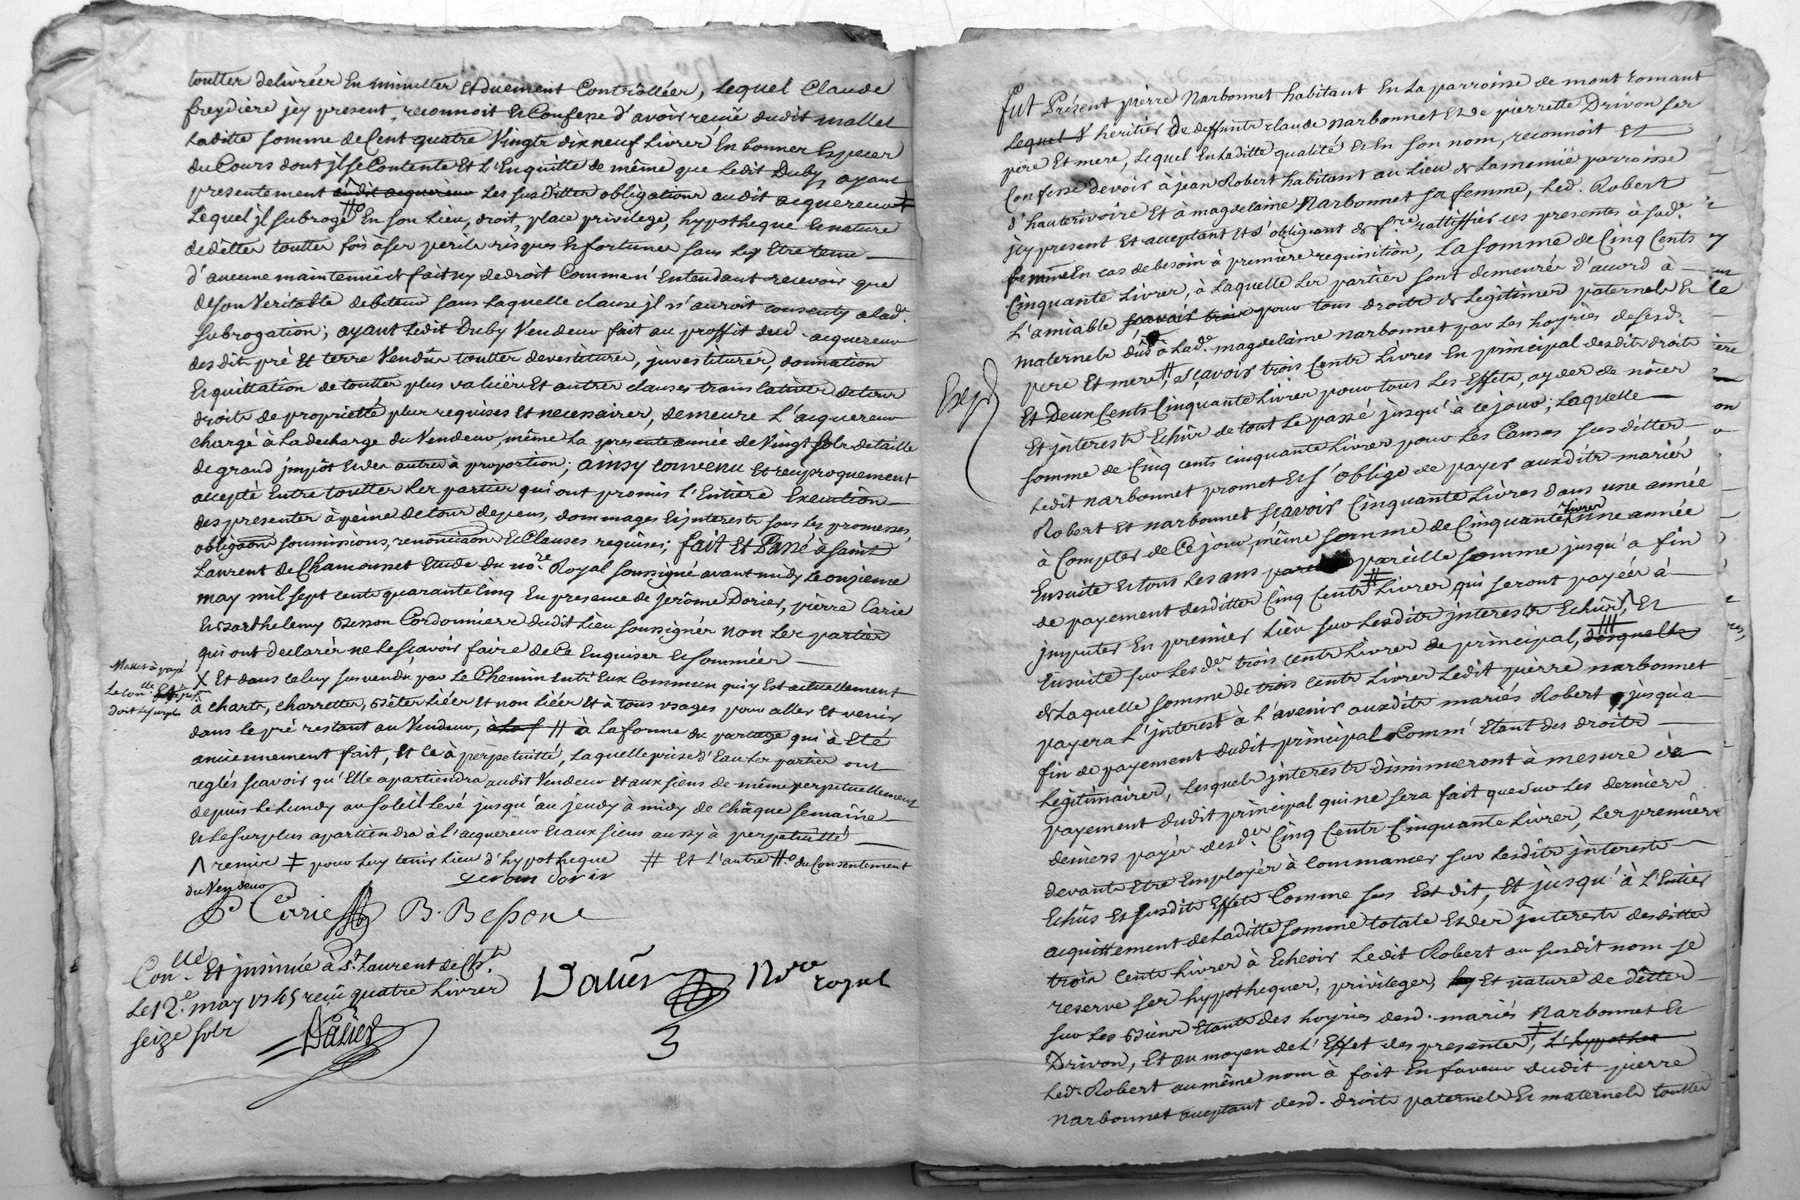 touttes delivrées En minuttes Et duement Controllées, lequel Claude
freydière jcy present, reconnoit Et Confesse d'avoir reçüe dudit mallet
laditte somme de Cent quatre Vingts dixneuf Livres En bonnes Especes
du Cours dont jl se Contente Et L'Enquitte de même que Ledit Duby, ayant
presentement Les susdittes obligations audit acquereur ‡
Lequel jl subroge En son Lieu, droit, place privilege, hypotheque Et nature
de dettes touttes fois à ses perils risques Et fortunes sans Etre tenu
d'aucune maintenüe de fait ny de droit Comme n'Entendant recevoir que
de son Veritable debiteur sans laquelle clause jl n'auroit consenty a lad.e
subrogation; ayant Ledit Duby Vendeur fait au proffit dud. acquereur
desdit pré Et terre Vendus touttes devestitures, jnvestitures, donnation
Et quittation de touttes plus values Et autres clauses translatives de tous
droits de proprietté plus requises Et necessaires, demeure L'acquereur
chargé à La decharge du Vendeur, même La presente année de Vingt sols de taille
de grand jmpôt Et des autres à proportion; ainsy convenu Et reciproquement
accepté Entre touttes Les parties qui ont promis L'Entiere Execution
des presentes à peine de tous depens, dommages Et jnterests sous Les promesses,
obligaõns soumissions, renonciaõns Et Clauses requises; fait Et Passé à Saint
Laurent de Chamousset Etude du no.re Royal soussigné avant midy Le onzieme
may mil sept cents quarante Cinq En presence de Jerôme Dories, pierre Carie
Et Barthelemy Besson Cordonniers dudit Lieu soussignés non Les parties
qui ont declarés ne Le sçavoir faire de Ce Enquises Et sommées
X Et dans celuy sus vendu par Le Chemin Entr'Eux Commun qui y Est actuellement
à chars, charrettes, Bêtes Liées Et non Liées Et à tous usages pour aller Et venir
dans le pré restant au Vendeur, # à La forme du partage qui à Eté
anciennement fait, Et Ce à perpetuitté, Laquelle prise d'Eau Les parties ont
reglés sçavoir qu'Elle apartiendra audit Vendeur Et aux siens de même perpetuellement
depuis Le Lundy au soleil Levé jusqu'au jeudy à midy de châque semaine
Et Le surplus apartiendra à L'acquereur Et aux siens aussy à perpetuitté
Λ remise ‡ pour Luy tenir Lieu d'hypotheque # Et L'autre #o du Consentement
du Vendeur
Jerom doris
P Carie B. Besson
Con.llé Et jnsinué à S.t Laurent de Ch.t
Le 12.e may 1745 reçu quatre Livres
seize sols
Dalier
Dalies N.re royal
3
fut Présent pierre Narbonnet habitant En La parroisse de mont romant
Lequel heritier de deffunts claude Narbonnet Et de pierrette Drivon ses
pere Et mere, Lequel En Laditte qualité Et En son nom, reconnoit Et
Confesse devoir à jean Robert habitant au Lieu de La même parroisse
d'hauterivoire Et à magdelaine Narbonnet sa femme, Led. Robert
jcy present Et acceptant Et s'obligeant de f.re rattiffier Les presentes à sad.e
femme En cas de besoin à premiere requisition, La somme de Cinq Cents
Cinquante Livres, à Laquelle Les parties sont demeurés d'acord à
L'amiable pour tous droits de Legitimes paternels Et
maternels dûs à Lad.e magdelaine Narbonnet par Les hoyries desesd.
pere Et mere, sçavoir trois Cents Livres En principal desdits droits
Et Deux Cents Cinquante Livres pour tous Les Effets, aydes de nôces
Et jnterests Echûs de tout Le passé jusqu'à ce jour; Laquelle
somme de Cinq cents cinquante Livres pour Les Causes susdittes
Ledit Narbonnet promet Et s'oblige de payer auxdits mariés
Robert Et Narbonnet sçavoir Cinquante Livres dans une année
à Compter de Ce jour, même somme de Cinquante Livres une année
Ensuite Et tous Les ans pareille somme jusqu'a fin
de payement desdittes Cinq Cents # Livres qui seront payées à
jmputer En premier Lieu sur Lesdits jnterests Echûs, Λ Et
Ensuite sur Lesd.es trois cents Livres de principal,
de Laquelle somme de trois cents Livres Ledit pierre Narbonnet
payera L'jnterest à L'avenir auxdits mariés Robert jusqu'a
fin de payement dudit principal Comm'Etant des droits
Legitimaires, Lesquels jnterests diminueront à mesure du
payement dudit principal qui ne sera fait que sur Les derniers
deniers payés desd.es Cinq Cents Cinquante Livres, Les premiers
devants Etre Employés à commances sur Lesdits jnterests
Echûs Et susdits Effets Comme sus Est dit, Et jusqu'à L'Entier
acquittement de Laditte somme totale Et des jnterests desdittes
trois Cents Livres à Echeoir Ledit Robert au susdit nom se
reserve ses hypotheques, privileges, Et nature de dettes
sur Les Biens Etants des hoyries desd. mariés Narbonnet Et
Drivon, Et au moyen de L'Effet des presentes, ‡
Led. Robert au même nom à fait En faveur dudit pierre
Narbonnet acceptant desd. droits paternels Et maternels touttes